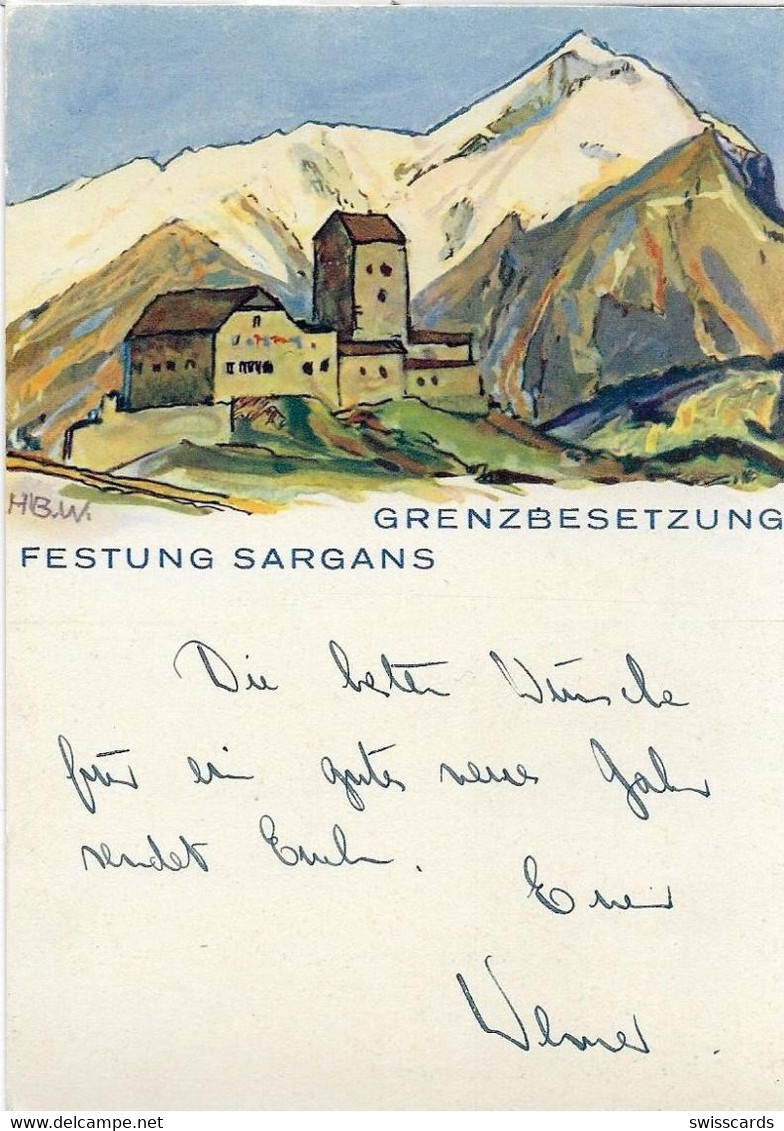 H.B.W.
GRENZBESETZUNG
FESTUNG SARGANS
Die besten Wünsche
für ein gutes neues Jahr
sendet Euch.
Euer
Werner
delcampe.net
swisscards